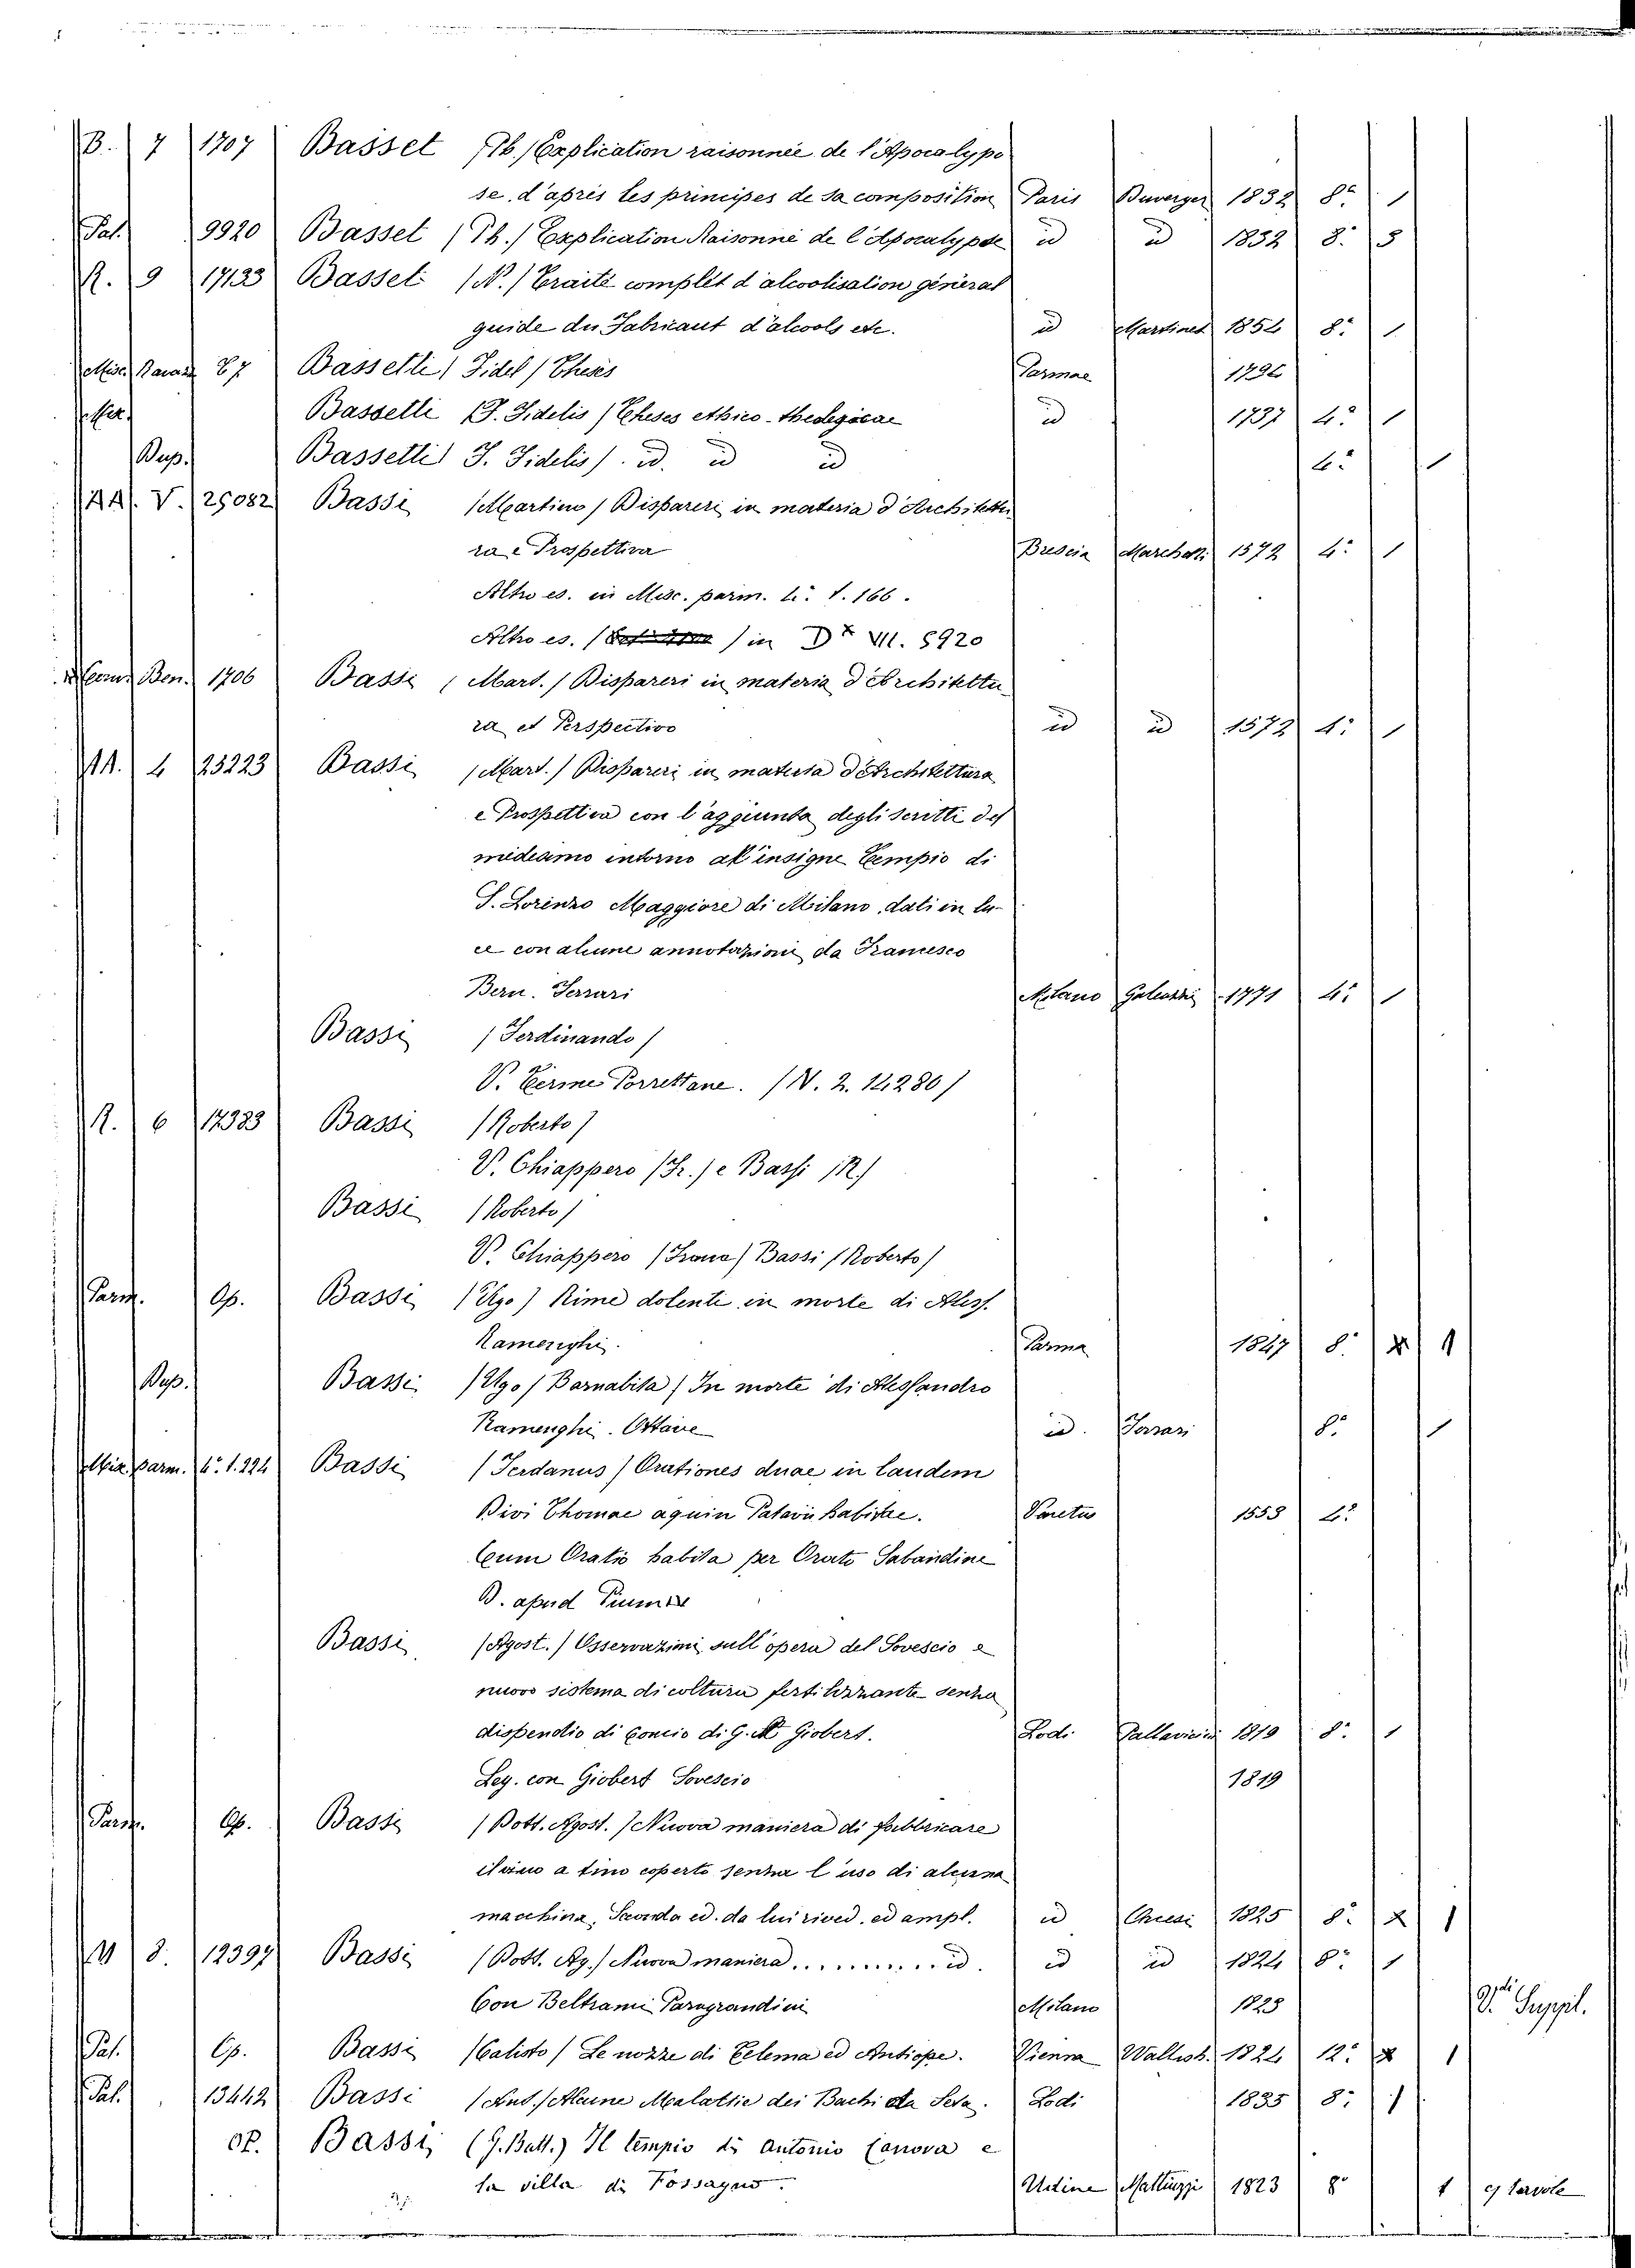 B. 7 1707 Basset (Th.) Explication raisonnée de l'Apocalyp
se, d'après les principes de sa composition Paris Duverger 1832 8° 1
Pal. 9920 Basset (Th.) Explication Raisonné de l'Apocalypse id id 1832 8. 3
R. 9 17133 Basset (N.) Traité complet d'alcoolisation général
guide du Fabricant d'alcools etc. id Martinet 1854 8. 1
Misc. 87 Bassetti (Fidel) Theses Parmae 1796
Bassetti (J. Fidelis) Theses ethico-theologicae id 1797 4° 1
Dup. Bassetti (J. Fidelis) id. id id 4° 1
AA. V. 25082 Bassi (Martino) Dispareri in materia d'Architettu
ra e Prospettiva Brescia Marchetti 1572 4. 1
Altro es. in Misc. parm. 4. t. 166.
Altro es. in D VII. 5920
Ben. 1706 Bassi (Mart.) Dispareri in materia d'Architettu
ra et Perspectiva id id 1572 4. 1
AA. 4 25223 Bassi (Mart.) Dispareri in materia d'Architettura
e Prospettiva con l'aggiunta degli scritti del
medesimo intorno all'insigne Tempio di
S. Lorenzo Maggiore di Milano, dati in lu
ce con alcune annotazioni da Francesco
Bern. Ferrari Milano Galeazzi 1771 4. 1
Bassi (Ferdinando)
V. Terme Porrettane. (V. 2. 14280)
R. 6 17383 Bassi (Roberto)
V. Chiappero (Fr.) e Bassi (R.)
Bassi (Roberto)
V. Chiappero (Franc) Bassi (Roberto)
Parm. Op. Bassi (Ugo) Rime dolenti in morte di Aless.
Ramenghi. Parma 1847 8. 1
Dup. Bassi (Ugo) Barnabita (In morte di Alessandro
Ramenghi. Ottave id. Ferrari 8. 1
Misc. parm. 4. t. 224 Bassi (Jerdanus) Orationes duae in laudem
Divi Thomae aquin Patavii habitae. Venetus 1553 4°
Cum Oratio habita per Orato Sabaudine
B. apud
Bassi (Agost.) Osservazioni sull'opera del Sovescio e
nuovo sistema di coltura fertilizzante senza
dispendio di concio di G. A. Giobert. Lodi Pallavicini 1819 8. 1
Leg. con Giobert Sovescio 1819
Parm. Op. Bassi (Dott. Agost.) Nuova maniera di fabbricare
il vino a tino coperto senza l'uso di alcuna
macchina. Seconda ed. da lui rived. ed ampl. id Orcesi 1825 8. X 1
8. 12397 Bassi (Dott. Ag.) Nuova maniera.......... id. id id 1824 8° 1
Con Beltrami Paragrandini Milano 1823 Suppl.
Pal. Op. Bassi (Calisto) Le nozze di Telema ed Antiope. Vienna Wallish. 1824 12. X 1
Pal. 13442 Bassi (Ant.) Alcune Malattie dei Bachi da Seta. Lodi 1835 8. 1
op. Bassi (G. Batt.) Il tempio di Antonio Canova e
la villa di Possagno. Udine Mattiuzzi 1823 8° 1 c/ tavole